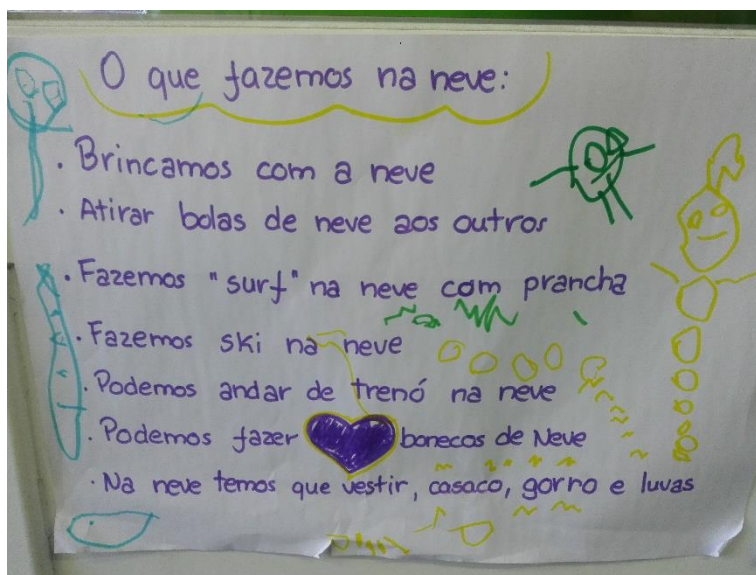 O que fazemos na neve:
. Brincamos com a neve
. Atirar bolas de neve aos outros
. Fazemos "surf" na neve com prancha
. Fazemos ski na neve
. Podemos andar de trenó na neve
. Podemos fazer bonecos de Neve
. Na neve temos que vestir, casaco, gorro e luvas